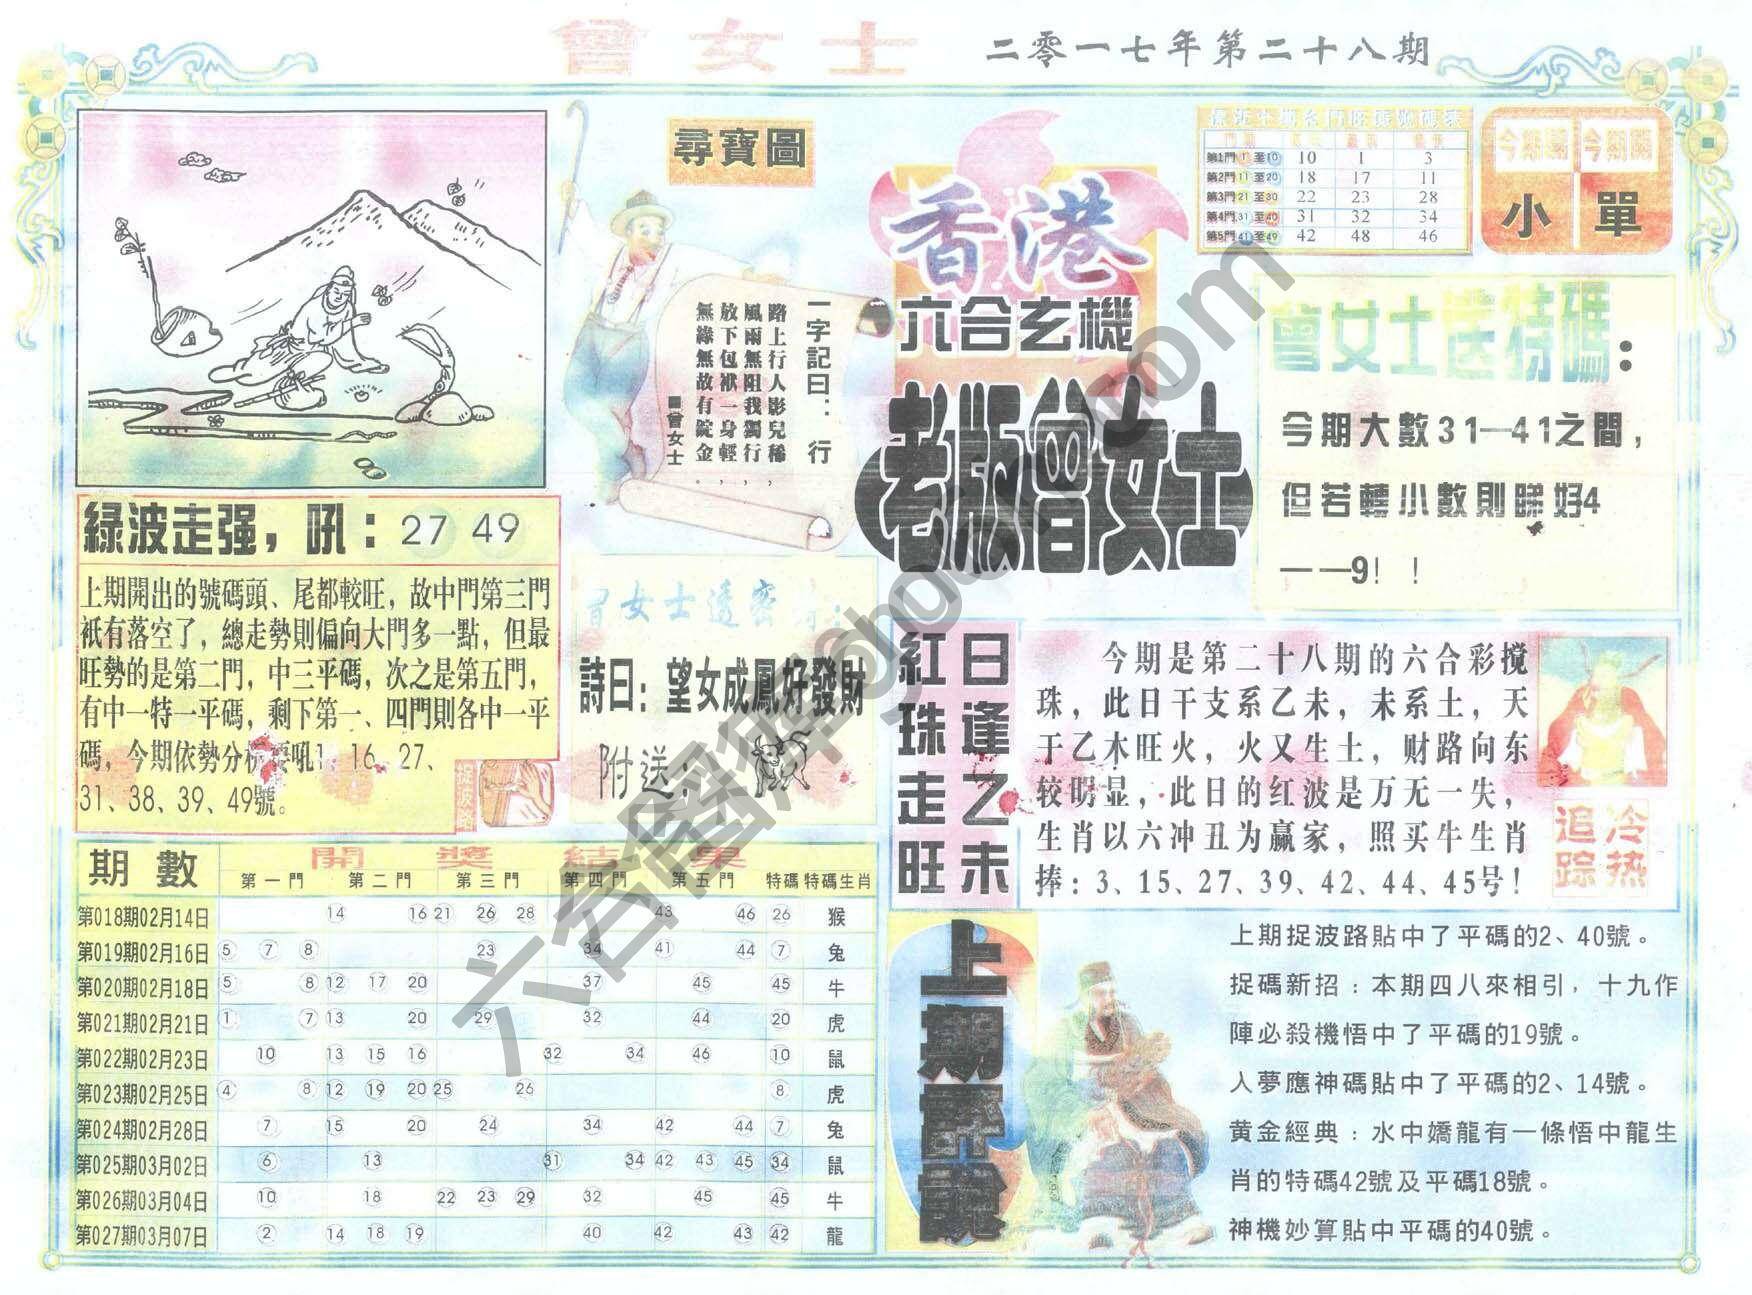 曾女士
二零一七年第二十八期
尋寶圖
一字記曰：行
路上行人影兒稀，
風雨無阻我獨行，
放下包袱一身輕，
無緣無故有錠金。
曾女士
香港
六合玄機
老版曾女士
第1門 1至10 10 1 3
第2門 11至20 18 17 11
第3門 21至30 22 23 28
第4門 31至40 31 32 34
第5門 41至49 42 48 46
今期開 今期開
小 單
曾女士送特碼：
今期大數31—41之間，
但若轉小數則睇好4
——9！！
綠波走强，吼：27 49
上期開出的號碼頭、尾都較旺，故中門第三門
衹有落空了，總走勢則偏向大門多一點，但最
旺勢的是第二門，中三平碼，次之是第五門，
有中一特一平碼，剩下第一、四門則各中一平
碼，今期依勢分析要吼1、16、27、
31、38、39、49號。
捉波路
曾女士透密
詩曰：望女成鳳好發財
附送：
日逢乙未
紅珠走旺
今期是第二十八期的六合彩搅
珠，此日干支系乙未，未系土，天
于乙木旺火，火又生土，财路向东
较明显，此日的红波是万无一失，
生肖以六冲丑为赢家，照买牛生肖
捧：3、15、27、39、42、44、45号！
冷热
追踪
期數 開獎結果
第一門 第二門 第三門 第四門 第五門 特碼 特碼生肖
第018期02月14日 14 16 21 26 28 43 46 26 猴
第019期02月16日 5 7 8 23 34 41 44 7 兔
第020期02月18日 5 8 12 17 20 37 45 45 牛
第021期02月21日 1 7 13 20 29 32 44 20 虎
第022期02月23日 10 13 15 16 32 34 46 10 鼠
第023期02月25日 4 8 12 19 20 25 26 8 虎
第024期02月28日 7 15 20 24 34 42 44 7 兔
第025期03月02日 6 13 31 34 42 43 45 34 鼠
第026期03月04日 10 18 22 23 29 32 45 45 牛
第027期03月07日 2 14 18 19 40 42 43 42 龍
上期評說
上期捉波路貼中了平碼的2、40號。
捉碼新招：本期四八來相引，十九作
陣必殺機悟中了平碼的19號。
人夢應神碼貼中了平碼的2、14號。
黃金經典：水中嬌龍有一條悟中龍生
肖的特碼42號及平碼18號。
神機妙算貼中平碼的40號。